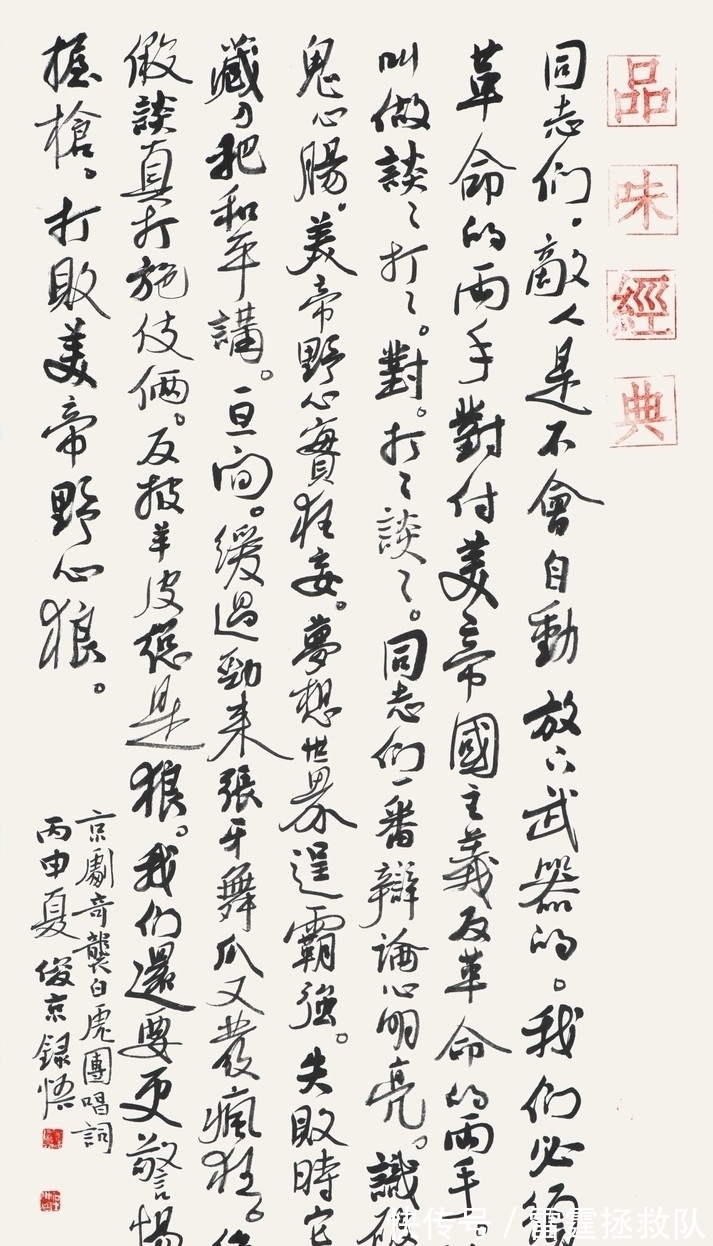 品味經典
同志们。敵人是不會自動放下武器的。我们必須
革命的两手對付美帝國主義反革命的两手。
叫做談〻打〻。對。打〻談〻。同志们一番辯論心明亮。識破
鬼心腸。美帝野心實狂妄。夢想世界逞霸強。失敗時它
藏刀把和平講。一旦间。緩過勁来張牙舞爪又發瘋狂。
假談真打施伎倆。反披羊皮總是狼。我们還要更警惕
握槍。打敗美帝野心狼。
京劇奇襲白虎團唱詞
丙申夏 俊京録悟
快传号／雷霆拯救队